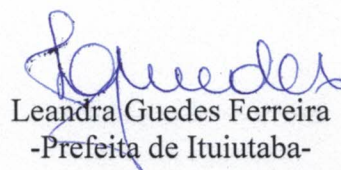 LGuedes
Leandra Guedes Ferreira
-Prefeita de Ituiutaba-